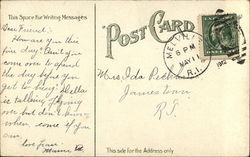 This Space For Writing Messages
POST CARD
Dear Friend:
How are you this
fine day? Can't you
come out to spend
the day before you
get to busy. Della
is talking of going
now but don't know
when. come if you
can.
love from
6 PM
MAY 1
R.I.
1912
Mrs. Ida
Jamestown
R.I.
This side for the Address only